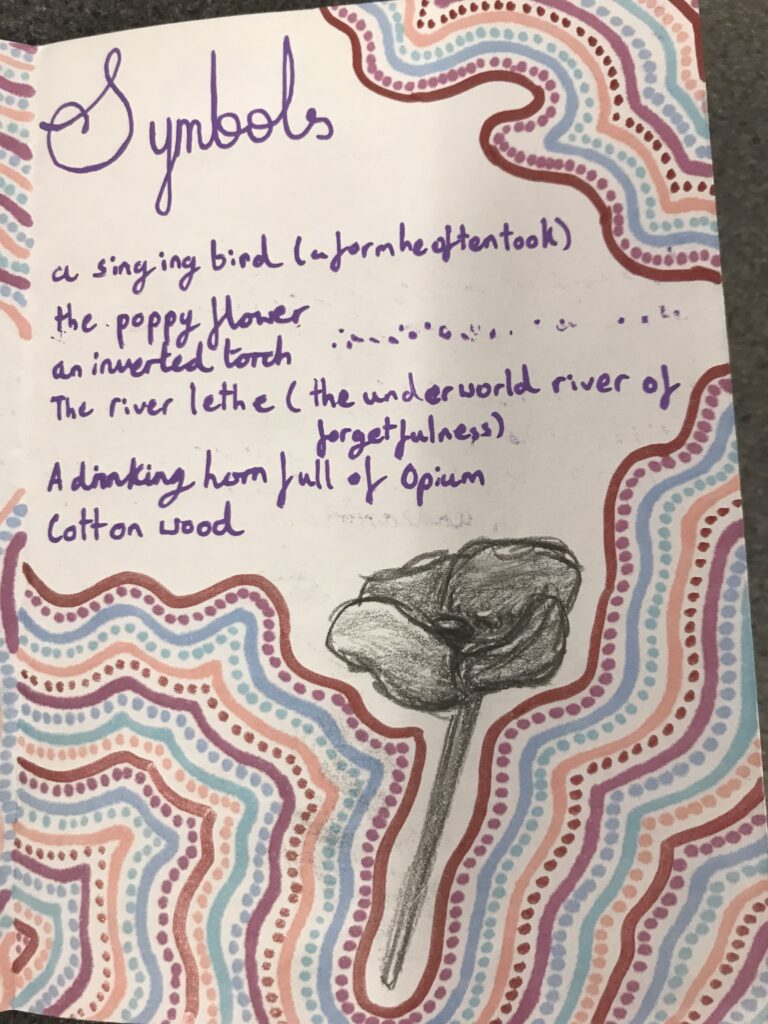 Symbols
a singing bird (a form he often took)
the poppy flower
an inverted torch
The river lethe (the underworld river of
forgetfulness)
A drinking horn full of Opium
Cotton wood